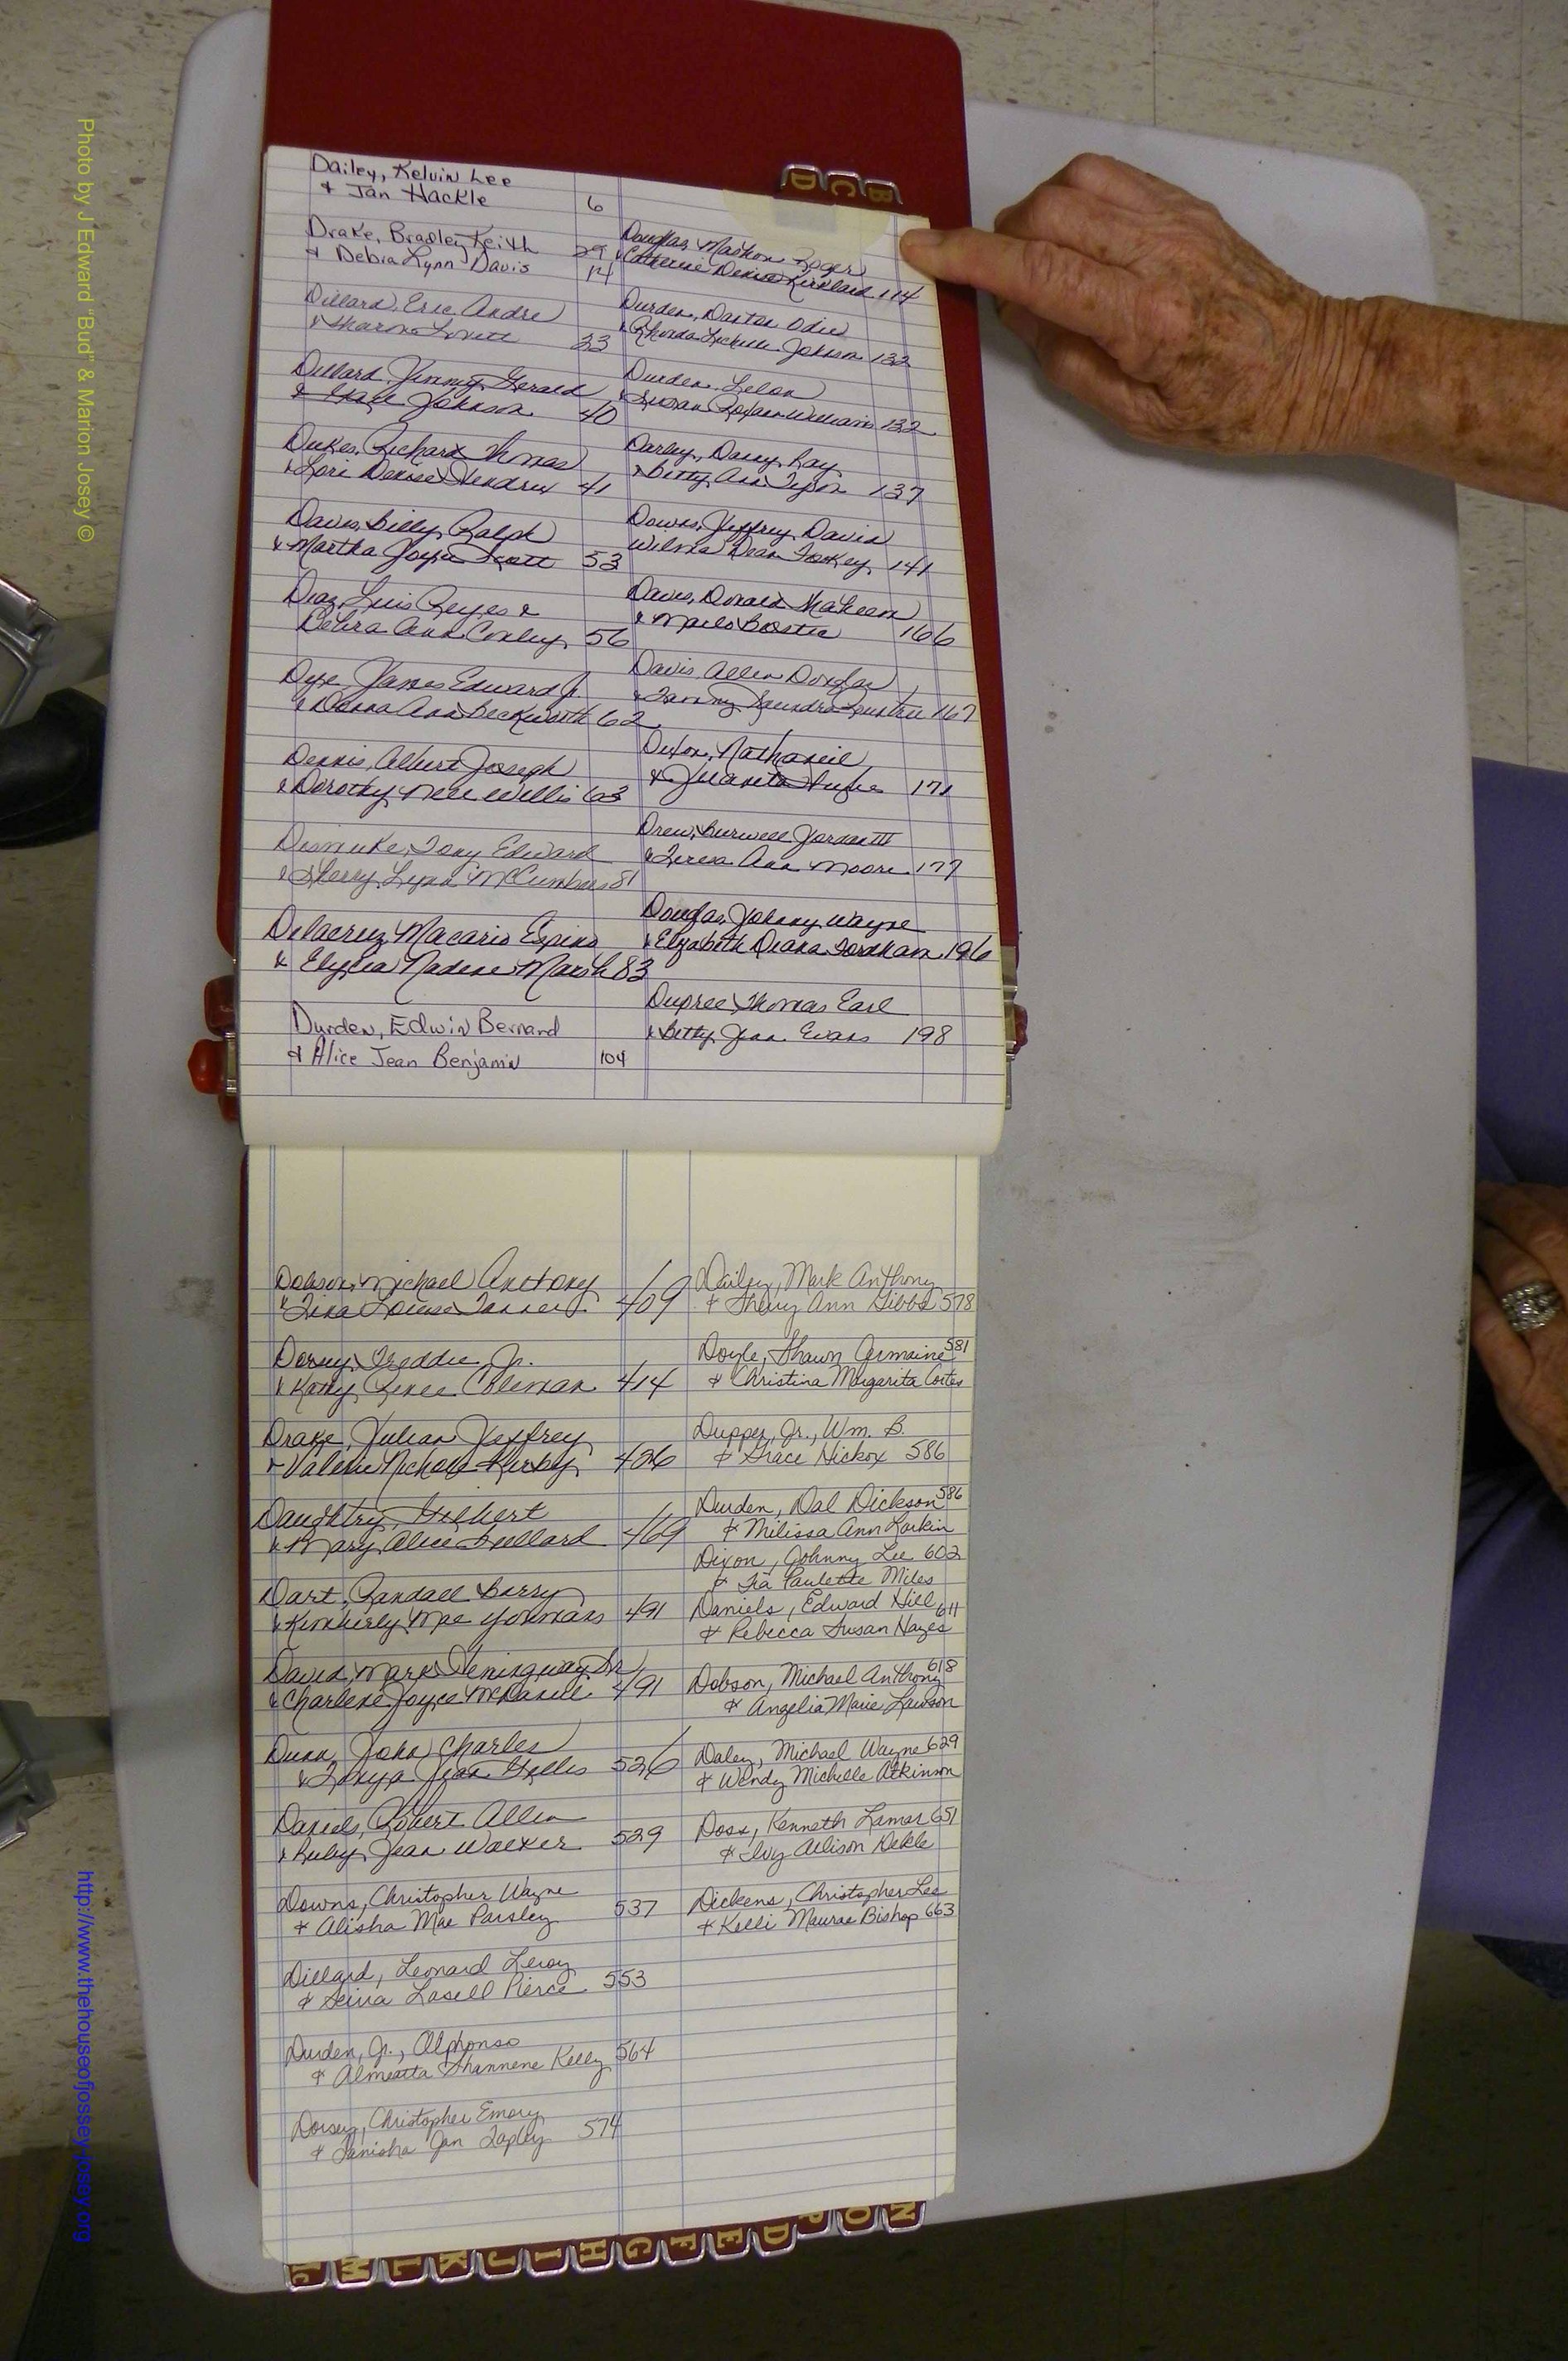 Photo by J Edward "Bud" & Marion Josey ©
http://www.thehouseofjossey-josey.org
D C B
Dailey, Kelvin Lee
& Jan Hackle 6
Drake, Bradley Keith 29
& Debra Lynn Davis 14
Dillard, Eric Andre
& Sharon Lovett 33
Dillard, Jimmy Gerald
& Johnson 40
Dukes, Richard Thomas
& Lori Denise Hendrix 41
Davis, Billy Ralph
& Martha Joyce Scott 53
Diaz, Luis Reyes &
Debra Ann Conley 56
Dye, James Edward Jr.
& Donna Ann Beckworth 62
Dennis, Albert Joseph
& Dorothy Nell Willis 63
Dismuke, Tony Edward
& Sherry Lynn McCumbers 81
Delacruz, Macario Espino
& Elycia Nadene Marsh 83
Durden, Edwin Bernard
& Alice Jean Benjamin 104
Douglas, Roger
& Catherine Denise Kirkland 114
Durden, Odie
& Rhonda Johnson 132
Durden, Lelon
& Susan Williams 132
Darley, Danny Ray
& Betty Ann 137
Downs, Jeffrey David
Wilma Dean 141
Davis, Donald
& 166
Davis, Allen Douglas
& Tammy 167
Dixon, Nathaniel
& Juanita 171
Drew, Burwell Jordan III
& Teresa Ann Moore 177
Douglas, Johnny Wayne
& Elizabeth Deana Fordham 196
Dupree, Thomas Earl
& Betty Jean Evans 198
Dobson, Michael Anthony
& Tina Louise Tanner 409
Dorsey, Freddie, Jr.
& Kathy Renee Coleman 414
Drake, Julian Jeffrey
& Valerie Nichole Kirby 426
Daughtry,
& Mary Alice 469
Dart, Randall Barry
& Kimberly Mae Youmans 491
David, Mark Heningway Sr.
& Charlene Joyce McDaniel 491
Dunn, John Charles
& Tonya Jean 526
Daniels, Robert Allen
& Ruby Jean Walker 529
Downs, Christopher Wayne
& Alisha Mae Parsley 537
Dillard, Leonard Leroy
& Lasell Pierce 553
Durden, Jr., Alphonso
& Almeatta Shannene Kelly 564
Dorsey, Christopher Emory
& Tanisha Jan Tapley 574
Dailey, Mark Anthony
& Sherry Ann Gibbs 578
Doyle, Shawn Germaine 581
& Christina Margarita Cortes
Dupper, Jr., Wm. B.
& Grace Hickox 586
Durden, Dal Dickson 586
& Milissa Ann Larkin
Dixon, Johnny Lee 602
& Tia Paulette Miles
Daniels, Edward Hill 611
& Rebecca Susan Hayes
Dobson, Michael Anthony 618
& Angelia Marie Lawson
Daley, Michael Wayne 629
& Wendy Michelle Atkinson
Doss, Kenneth Lamar 651
& Ivy Allison Dekle
Dickens, Christopher Lee
& Kelli Maurae Bishop 663
Mc M L K J I H G F E D P O N